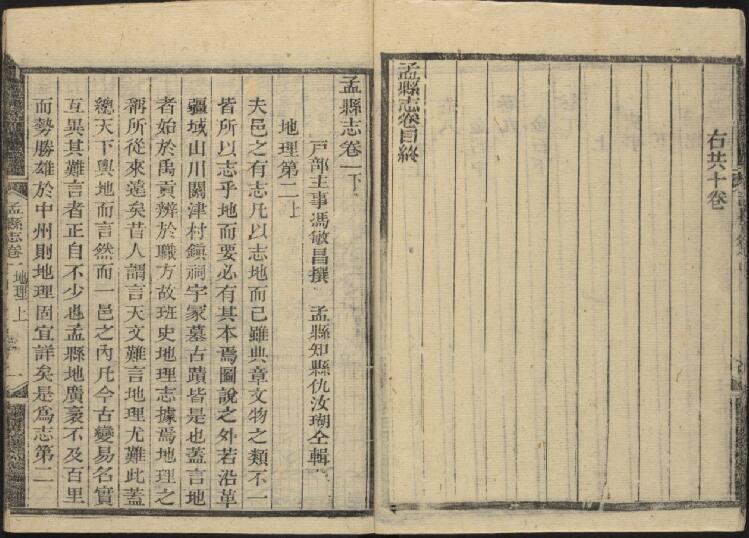 右共十卷
孟縣志卷目終
孟縣志卷一下
戸部主事馮敏昌撰　孟縣知縣仇汝瑚仝輯
地理第二上
夫邑之有志凡以志地而已雖典章文物之類不一
皆所以志乎地而要必有其本焉圖說之外若沿革
疆域山川關津村鎮祠宇冢墓古蹟皆是也蓋言地
者始於禹貢辨於職方故班史地理志據焉地理之
稱所從來遠矣昔人謂言天文難言地理尤難此蓋
總天下輿地而言然而一邑之內凡今古變易名實
互異其難言者正自不少也孟縣地廣袤不及百里
而勢勝雄於中州則地理固宜詳矣是爲志第二
孟縣志卷一 地理上 一